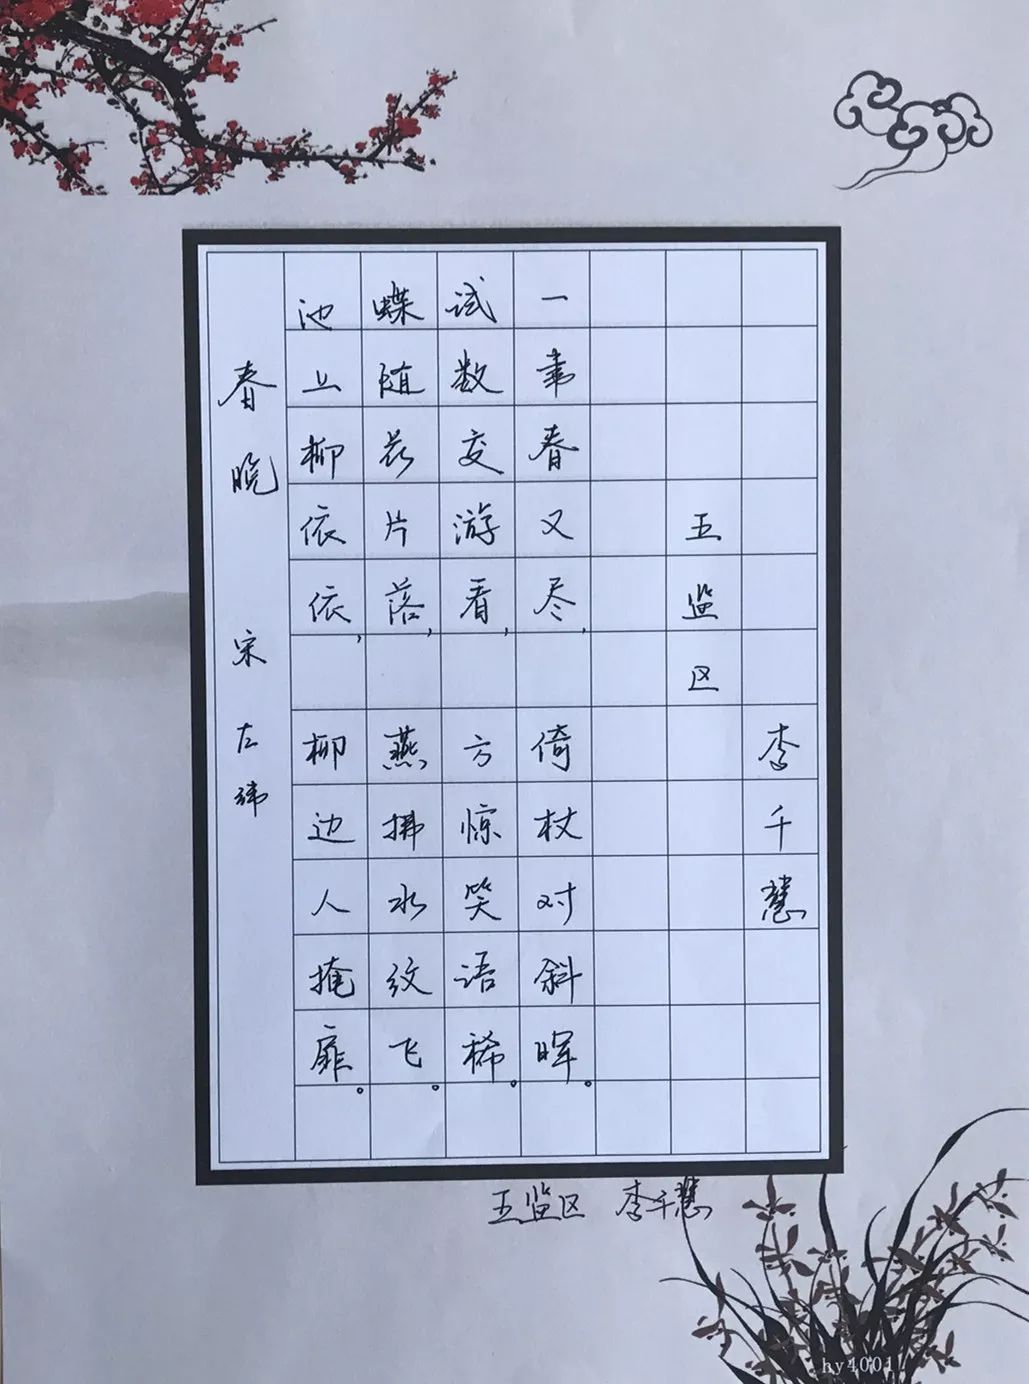 春晚 宋 左纬
池上柳依依，柳边人掩扉。
蝶随花片落，燕拂水纹飞。
试数交游看，方惊笑语稀。
一年春又尽，倚杖对斜晖。
五监区
李千慧
五监区 李千慧
hy4001